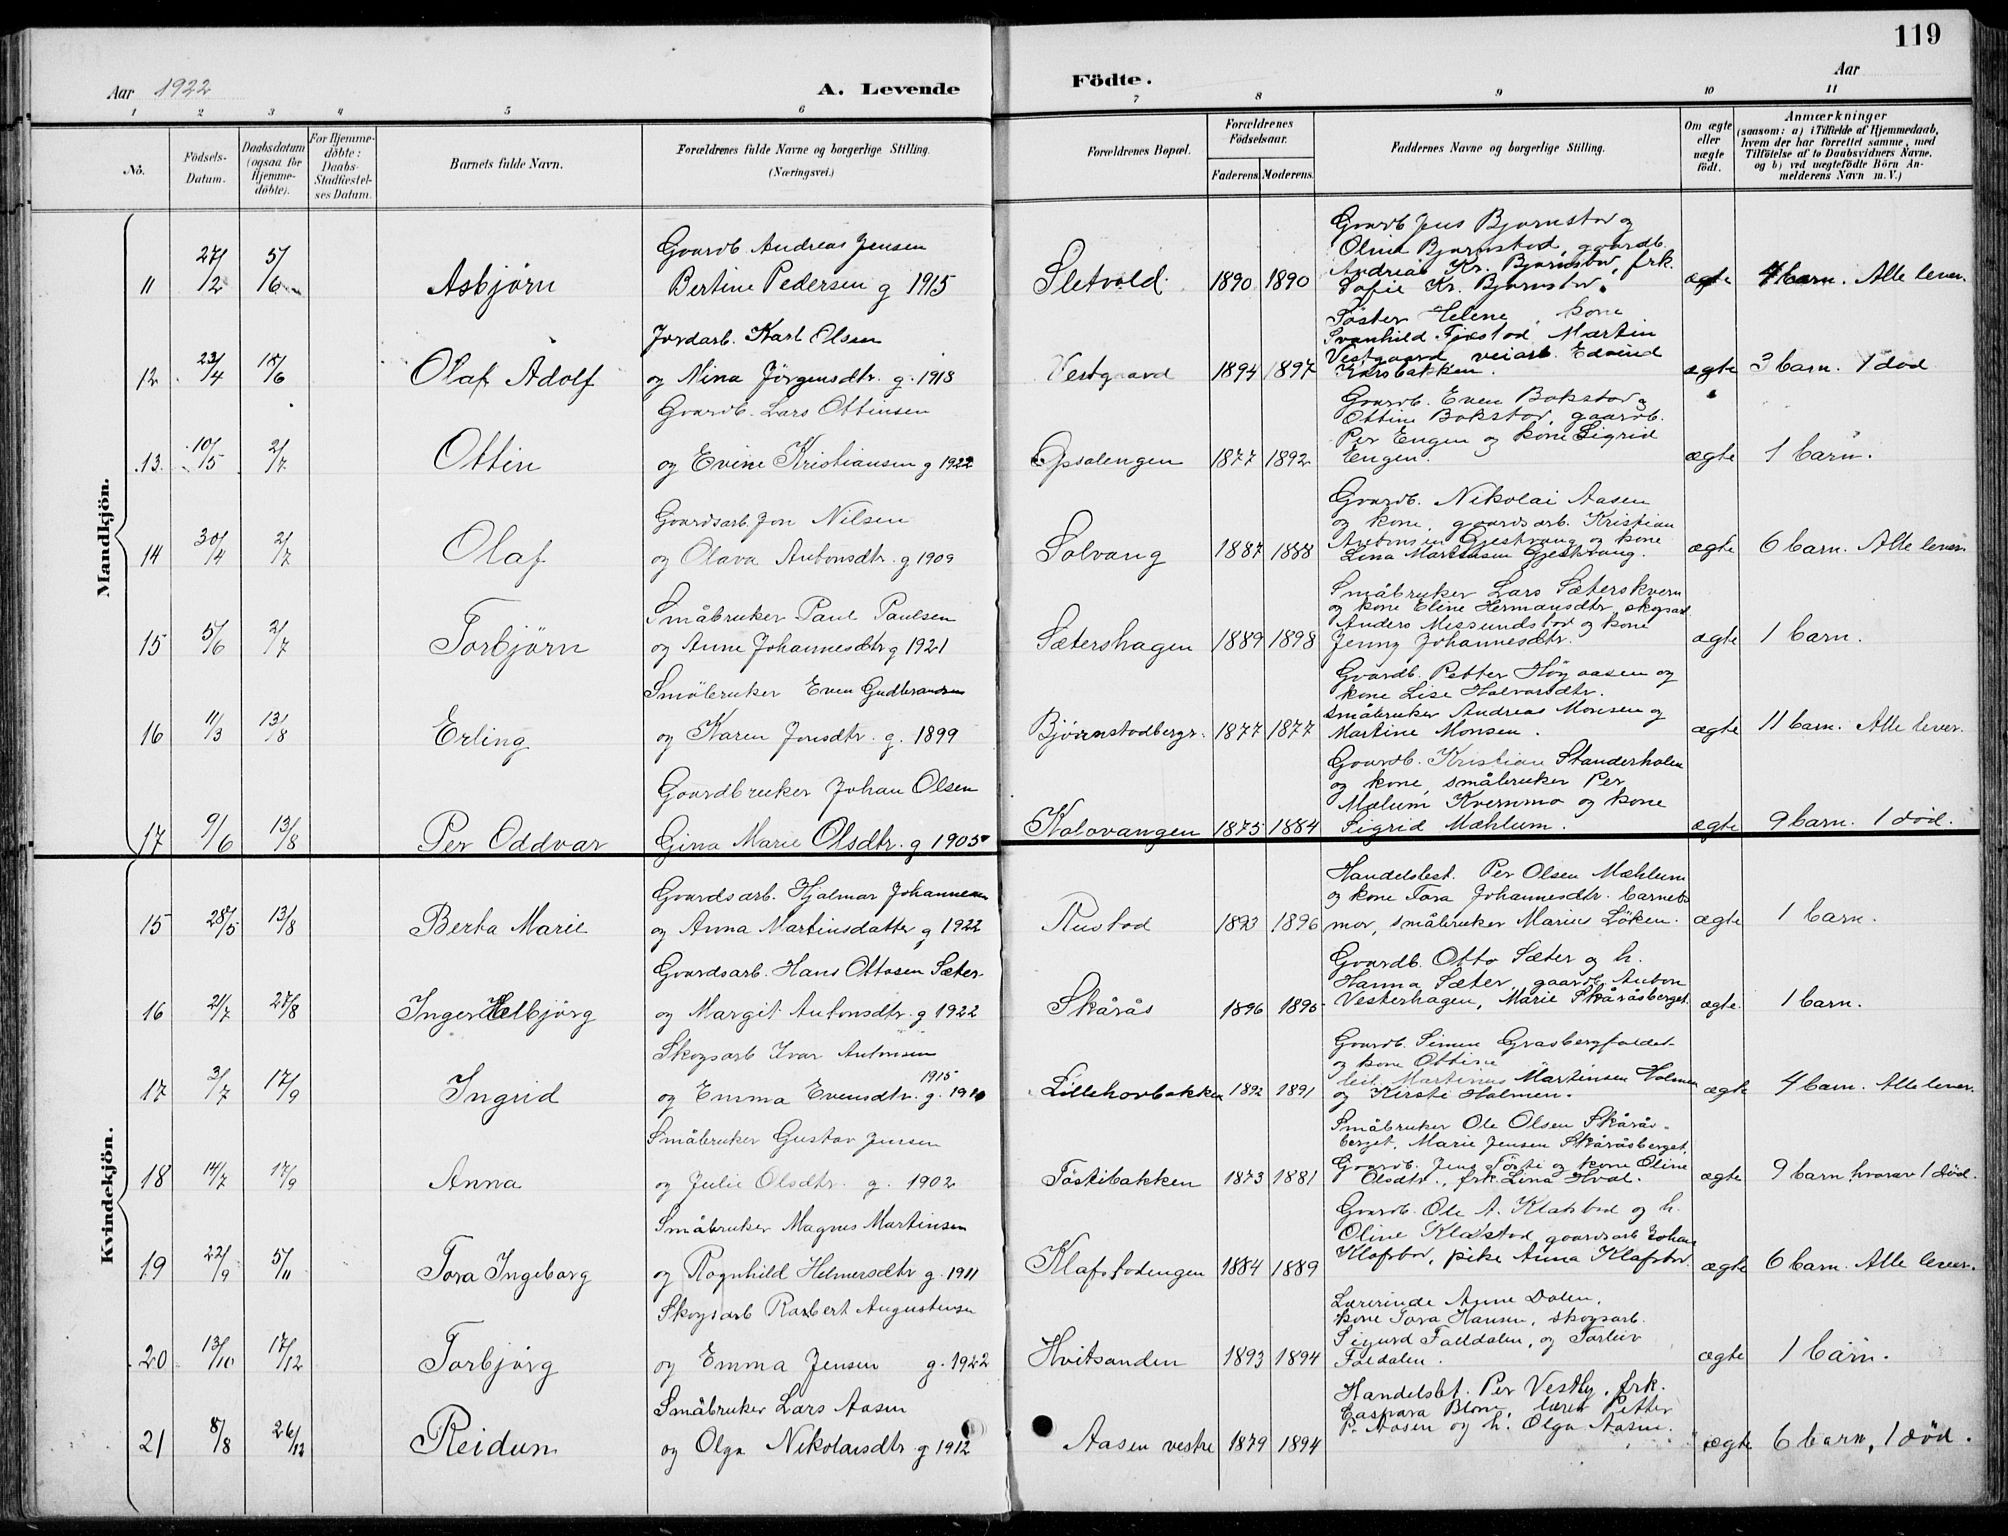 119
Aar 1922
A. Levende
Födte.
Aar
1 2 3 4 5 6 7 8 9 10 11
No.
Födsels-Datum.
Daabsdatum (ogsaa for Hjemme-döbte).
For Hjemme-döbte: Daabs-Stadfæstel-ses Datum.
Barnets fulde Navn.
Forældrenes fulde Navne og borgerlige Stilling.
(Næringsvei.)
Forældrenes Bopæl.
Forældrenes Födselsaar.
Faderens. Moderens.
Faddernes Navne og borgerlige Stilling.
Om ægte eller uægte födt.
Anmærkninger
(saasom: a) i Tilfælde af Hjemmedaab, hvem der har forrettet samme, med Tilföielse af to Daabsvidners Navne. og b) ved uægtefödte Börn An-melderens Navn m. V.)
Mandkjön.
11 27/2 5/6 Asbjørn
Gaardb Andreas Jensen
Bertine Pedersen g 1915
Sletvold 1890 1890
Gaardb Jens Bjørnstad og
Olina Bjørnstad, gaardb.
Andreas Kr. Bjørnstad, frk.
Sofie Kr. Bjørnstad.
ægte 4 barn. Alle lever.
12 23/4 18/6 Olaf Adolf
Jordarb. Karl Olsen
og Nina Jörgensdtr. g. 1918
Vestgaard 1894 1897
Söster Helene, kone
Svanhild Fjæstad, Martin
Vestgaard, veiarb. Edvind
ægte 3 barn. 1 död
13. 10/5 2/7 Ottin
Gaardb. Lars Ottinsen
og Evine Kristiansen g 1922
Opsalengen 1877 1892
Gaardb. Even Bakstad og
Ottine Bakstad, gaardb.
Per Engen og kone Sigrid
Engen.
ægte 1 barn.
14 30/4 2/7 Olaf
Gaardsarb. Jon Nilsen
og Olava Antonsdtr. g 1909
Solvang 1887 1888
Gaardb. Nikolai Aasen
og kone, gaardsarb. Kristian
Antonsen Gjestvang og kone
Lina Martinsen Gjestvang.
ægte 6 barn. Alle lever
15 5/6 2/7 Torbjörn
Småbruker Paul Paulsen
og Anne Johannesdtr g 1921
Sætershagen 1889 1898
Småbruker Lars Sæterskvern
og kone Eline Hermansdtr, skogsarb
Anders Messundstad og kone
Jenny Johannesdtr.
ægte 1 barn.
16 11/3 13/8 Erling
Småbruker Even Gudbrandsen
og Karen Jonsdtr. g. 1899
Bjørnstadbergr. 1877 1877
Gaardb. Petter Høyaasen og
kone Lise Halvorsdtr.
småbruker Andreas Monsen og
Martine Monsen.
ægte 11 barn. Alle lever.
17 9/6 13/8 Per Oddvar
Gaardbruker Johan Olsen
Gina Marie Olsdtr. g 1905
Kolovangen 1875 1884
Gaardb. Kristian Standerholen
og kone, småbruker Per
Mælum Kvernmo og kone
Sigrid Mæhlum.
ægte 9 barn. 1 död.
Kvindekjön.
15 28/5 13/8 Berta Marie
Gaardsarb. Hjalmar Johannesen
og Anna Martinsdatter g 1922
Rustad 1893 1896
Handelsbest. Per Olsen Mæhlum
og kone Tora Johannesdtr. barnets
mor, småbruker Marius Löken.
ægte 1 barn.
16 21/7 27/8 Inger Helbjörg
Gaardsarb. Hans Ottosen Sæter
og Margit Antonsdtr. g 1922
Skårås 1896 1895
Gaardb. Otto Sæter og h.
Hanna Sæter, gaardb. Anton
Vesterhagen, Marie Skåråsberget.
ægte. 1 barn.
17 3/7 17/9 Ingrid
Skogsarb Ivar Antonsen
1915
og Emma Evensdtr. g. 1910
Lillehovbakken 1892 1891
Gaardb. Simen Grasbergfaldet
og kone Ottine
leil. Martinus Martinsen Holmen
og Kirsti Holmen.
ægte 4 barn. Alle lever.
18 14/7 17/9 Anna
Småbruker Gustav Jensen
og Julie Olsdtr. g. 1902
Töstibakken 1873 1881
Småbruker Ole Olsen Skårås-
berget, Marie Jensen Skåråsberget,
Gaardb. Jens Tösti og kone Oline
Olsdtr., frk. Lina Hval.
ægte 9 barn, hvorav 1 död.
19 22/9 5/11 Tora Ingeborg
Småbruker Magnus Martinsen
og Ragnhild Helmersdtr g. 1911
Klafstadengen 1884 1889
Gaardb. Ole A. Klafstad og h.
Oline Klafstad, gaardsarb Johan
Klafstad, pike Anna Klafstad.
ægte 6 barn. Alle lever.
20 13/10 17/12 Torbjörg
Skogsarb Robert Augustinsen
og Emma Jensen g. 1922
Hvitsanden 1893 1894
Lærerinde Anne Dalen,
kone Tora Hansen, skogsarb.
Sigurd Falldalen, og Torleiv
Faldalen.
ægte 1 barn.
21 8/8 26/12 Reidun
Småbruker Lars Aasen
og Olga Nikolaisdtr g 1912
Aasen vestre 1879 1894
Handelsbt. Per Vestby, frk.
Caspara Blom, lærer Petter
P. Aasen og h. Olga Aasen.
ægte 6 barn, 1 död.